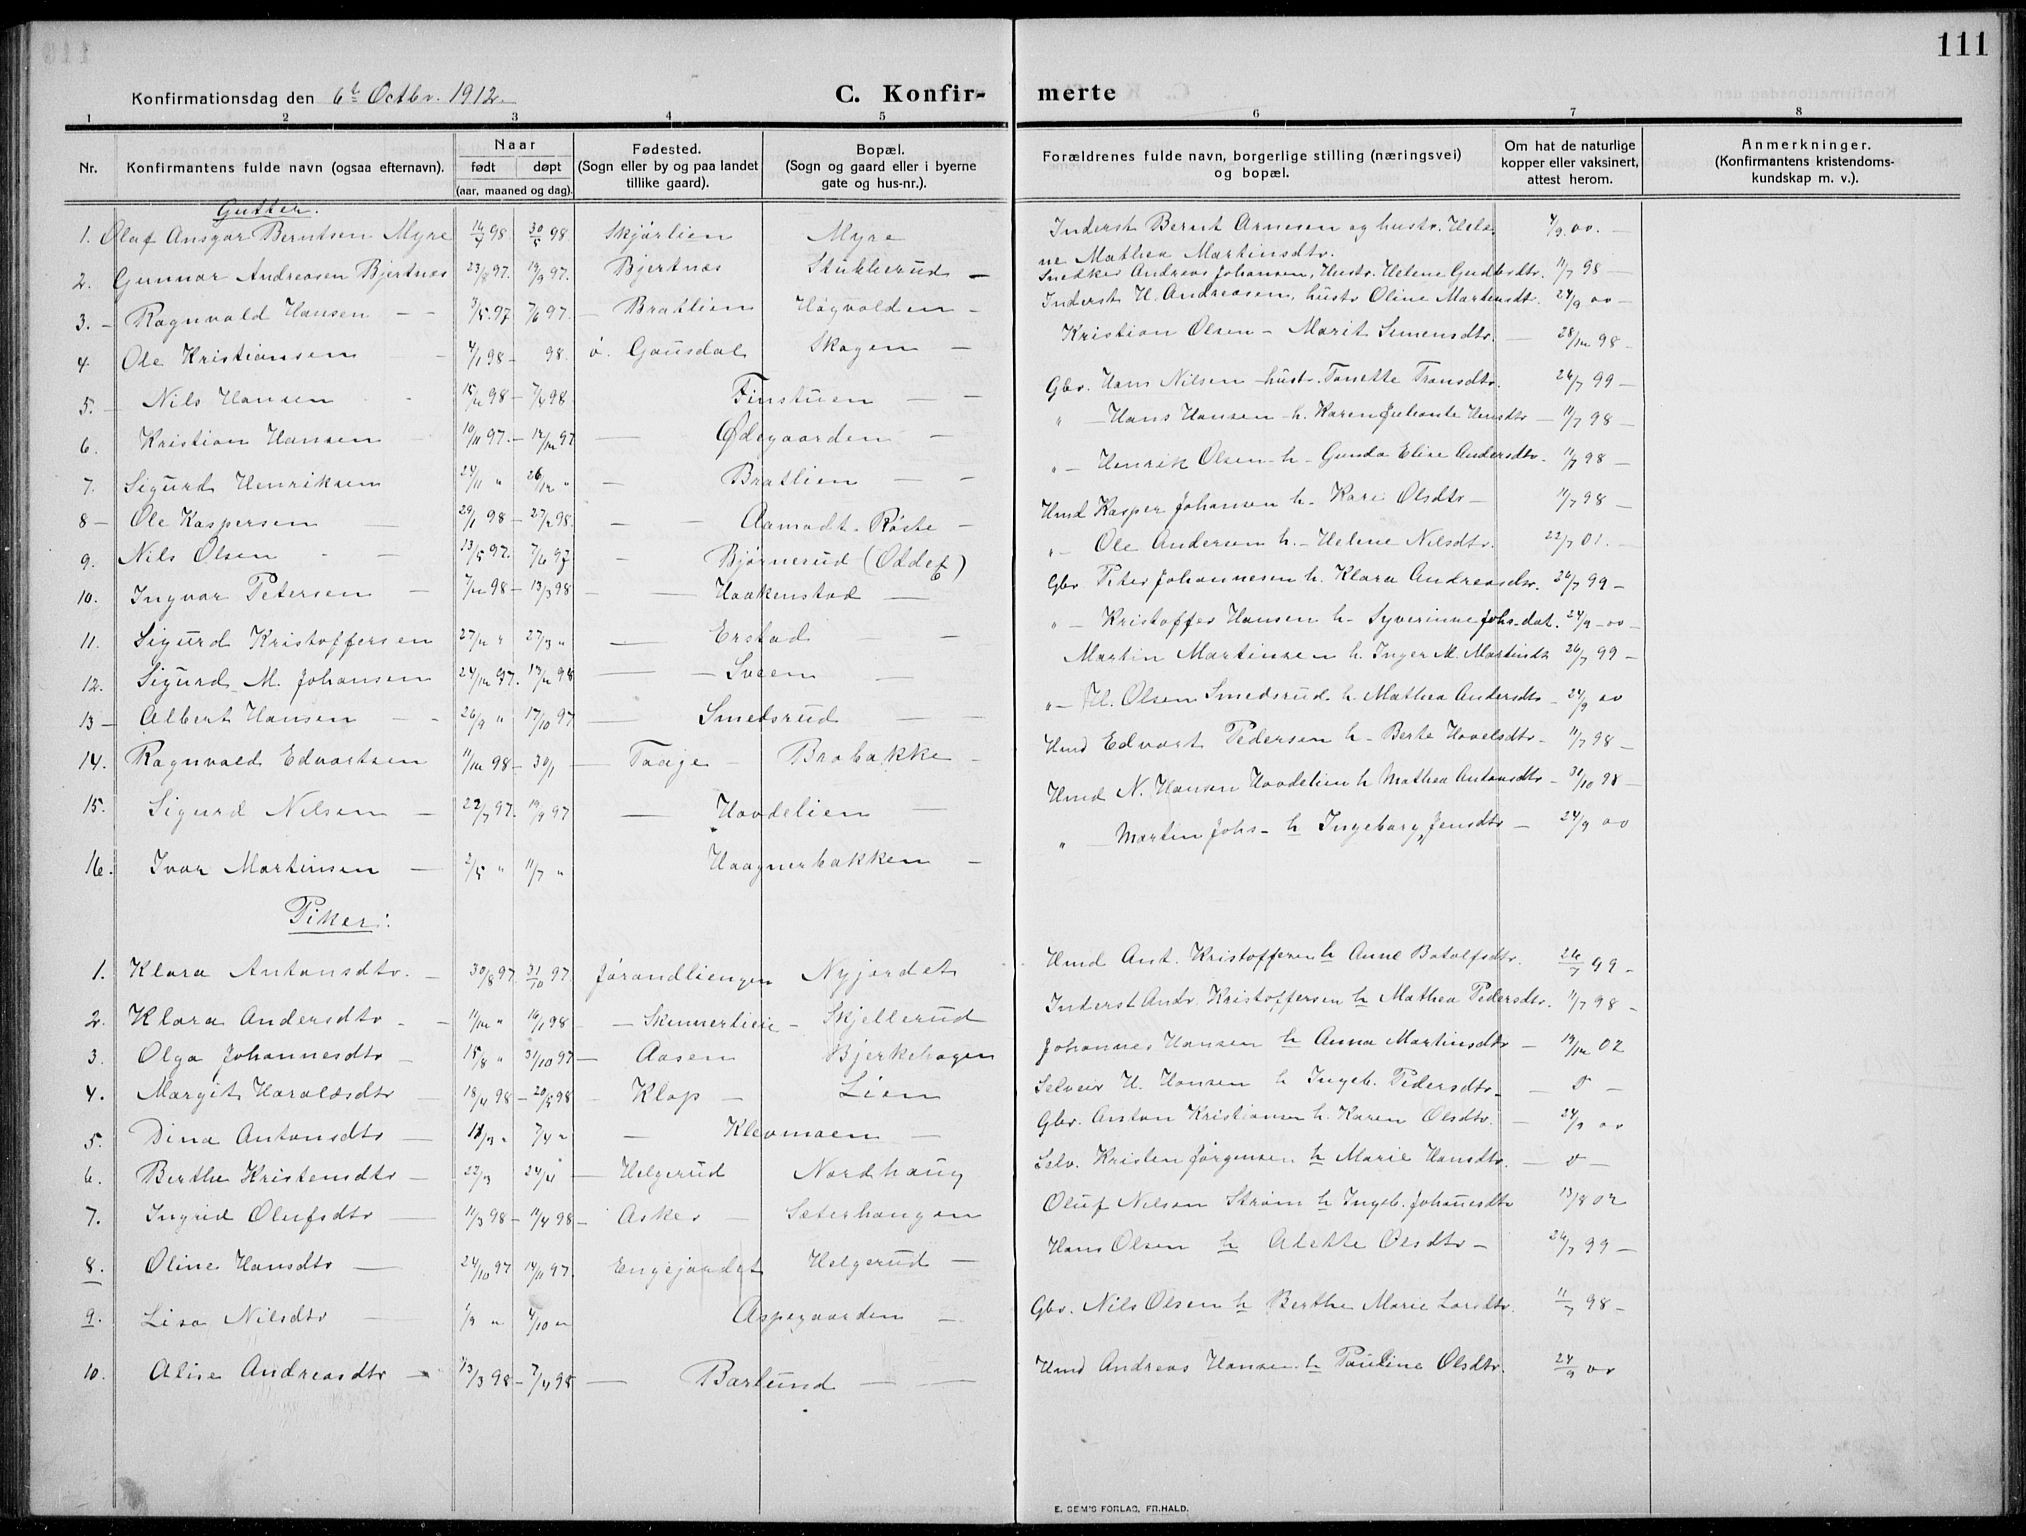 111
Konfirmationsdag den 6te Octbr. 1912.
C. Konfir-
merte
1 2 3 4 5 6 7 8
Nr.
Konfirmantens fulde navn (ogsaa efternavn).
Naar
født døpt
(aar, maaned og dag).
Fødested.
(Sogn eller by og paa landet
tillike gaard).
Bopæl.
(Sogn og gaard eller i byerne
gate og hus-nr.).
Forældrenes fulde navn, borgerlige stilling (næringsvei)
og bopæl.
Om hat de naturlige
kopper eller vaksinert,
attest herom.
Anmerkninger.
(Konfirmantens kristendoms-
kundskap m. v.).
Gutter.
1. Olaf Ansgar Berntsen Myre 98. 30/5 98 Skjørlien Myre Inderst Bernt Arnesen og hustr. Hele- 4/9 00. —
ne Mathea Martinsdtr.
2. Gunnar Andreasen Bjertnæs 23/8 97. 19/9 97. Bjertnæs Stubberud — Snedker Andreas Johansen, Hustr. Helene Gudbrdtr. 11/7 98 —
3. — Ragnvald Hansen — 3/5. 97 7/6 97. — Bratlien Høgvolden — Inderst H. Andreasen, hustr Oline Martinsdtr. 24/9 00 —
4. Ole Kristiansen 4/1 98 — 98. ø. Gausdal Skogen — Kristian Olsen — Marit Simensdtr. — 28/12 98 —
5. — Nils Hansen 98 — 98 Finstuen — Gbr. Hans Nilsen — hustr. Tonette Transdtr. 26/7 99 —
6. Kristian Hansen 10/11 97. — 12/12 97 — Ødegaarden — " — Hans Hansen — h. Karen Johante Hansdtr — 11/7 98 —
7. Sigurd Henriksen 24/11 " 26/12 " — Bratlien — " — Henrik Olsen — h — Gunda Elise Andersdtr. 11/7 98 —
8 — Ole Kaspersen 29/1 98 — 27/2 98. — Aamodt. Røste — Hmd Kasper Johansen h. Kari Olsdtr — 11/7 98 —
9. Nils Olsen — 13/5 97. 7/6 97 — Bjørnerud (Oddef) " — Ole Andersen h. — Helene Nilsdtr. 22/7 01. —
10. Ingvar Petersen — 98 — 13/3 98 — Haakenstad — Gbr Peter Johannesen h. Klara Andreasdtr. 26/7 99 —
11. Sigurd Kristoffersen 27/12 " 27/3 " — Erstad — " — Kristoffer Hansen h — Syverinne Johs-dat. 24/9 — 00 —
12. Sigurd M. Johansen 24/12 97. 13/2 98 — Sveen — Martin Martinsen h. Inger M. Martinsdtr 26/7 99 —
13 — Albert Hansen — 26/9 " 17/10 97 — Smedsrud — " — H. Olsen Smedsrud h Mathea Andersdtr — 24/9 00
14. Ragnvald Edvartsen 98 — 30/1 — Taaje — Brobakke — Hmd Edvart Pedersen h — Berte Hovelsdtr — 11/7 98 —
15. Sigurd Nilsen — 22/7 97. 19/9 97 — Hovdelien — Hmd N. Hansen Hovdelien h Mathea Antonsdtr — 31/10 98 —
16. Ivar Martinsen — 2/5 " 11/7 " Haagnerbakken — " — Martin Johs — h Ingeborg Jensdtr — 24/9 00
Piker:
1. Klara Antonsdtr. — 30/8 97. 31/10 97 Jørandliengen Nyjordet Hmd Ant. Kristoffersen h Anne Botolfsdtr. 26/7 99 —
2. Klara Andersdtr — 11/12 " 16/1 98 — Skinnerlieie — Skjellerud Inderst Andr. Kristoffersen h Mathea Pedersdtr. 11/7 98 —
3. Olga Johannesdtr — 15/8 " 31/10 97 — Aasen Bjerkehagen Johannes Hansen h Anna Martinsdtr — 19/12 02
4. Margit Haraldsdtr — 18/4 98 — 20/5 98 — Klop — Lien Selveier H. Hansen h Ingeb. Pedersdtr — — 0 —
5. Dina Antonsdtr — 11/3 " 7/4 " — Klevmoen — Gbr. Anton Kristiansen h. Karen Olsdtr. — 24/9 00
6. Berthe Kristensdtr — 22/3 24/4 — Helgerud Nordhaug Selv. Kristen Jørgensen h Marie Hansdtr. — 0 —
7. Ingrid Olufsdtr — 11/3 98 — 11/4 98 — Asker — Sæterhaugen Oluf Nilsen Strøm h Ingeb. Johannesdtr 13/8 02
8. Oline Hansdtr — 24/10 97 14/11 97. Engejordet Helgerud — Hans Olsen h Alette Olsdtr — 26/7 99 —
9. Lisa Nilsdtr — 1/9 " 4/10 " Aspegaarden — Gbr. Nils Olsen h Berthe Marie Larsdtr. 11/7 98 —
10. Alise Andreasdtr — 13/3 98 — 7/4 98 — Barlund — Hmd Andreas Hansen h Pauline Olsdtr. 24/9 00
E. SEM'S FORLAG, FR.HALD.